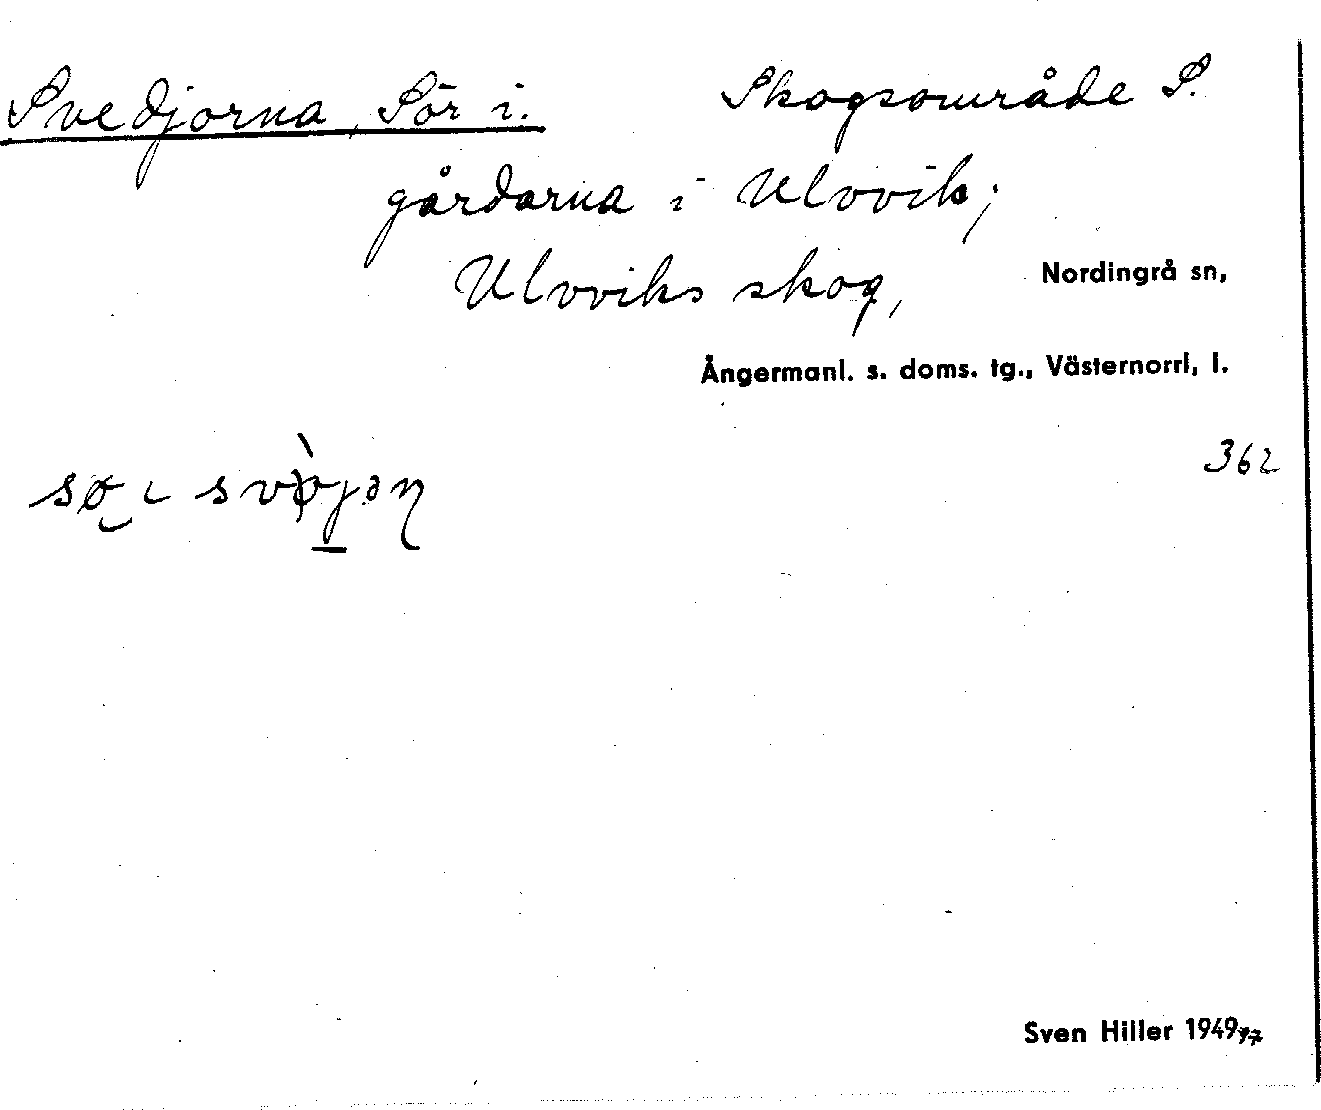 Svedjorna, Sör i. Skogsområde S.
gårdarna i Ulvvik;
Ulvviks skog, Nordingrå sn,
Ångermanl. s. doms. tg., Västernorrl, l.
362
Sven Hiller 1949